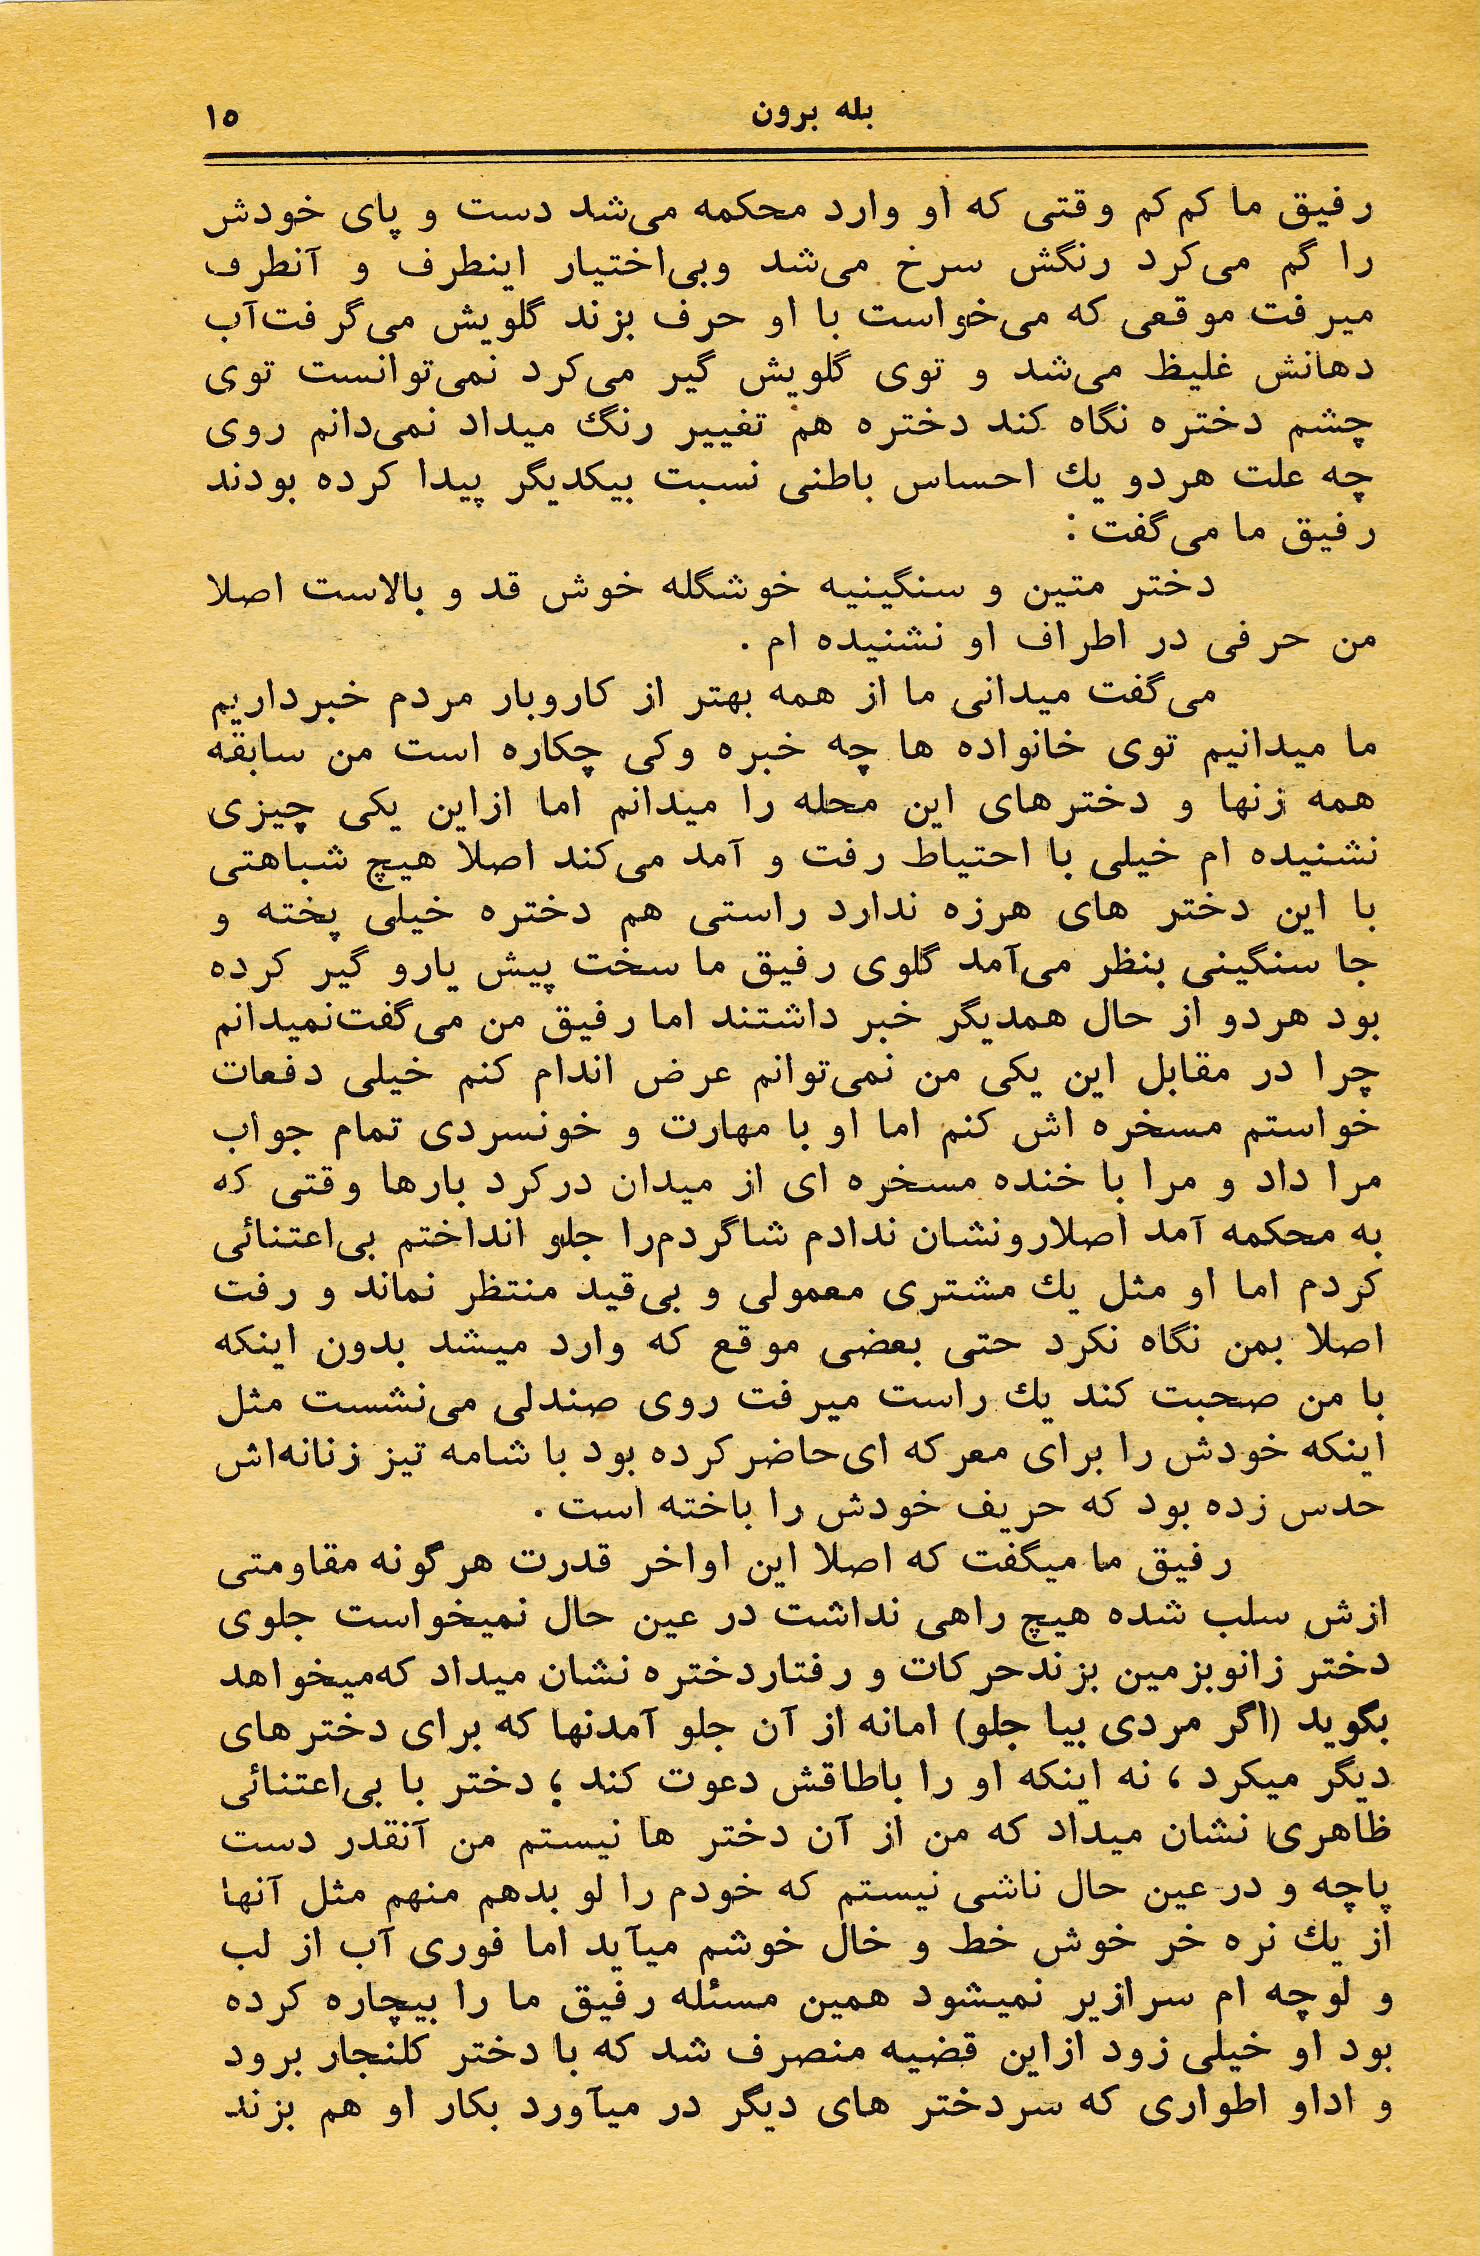 بله برون
۱۵
رفیق ما کم‌کم وقتی که او وارد محکمه می‌شد دست و پای خودش
را گم می‌کرد رنگش سرخ می‌شد وبی‌اختیار اینطرف و آنطرف
میرفت موقعی که می‌خواست با او حرف بزند گلویش می‌گرفت‌آب
دهانش غلیظ می‌شد و توی گلویش گیر می‌کرد نمی‌توانست توی
چشم دختره نگاه کند دختره هم تغییر رنگ میداد نمی‌دانم روی
چه علت هردو یك احساس باطنی نسبت بیکدیگر پیدا کرده بودند
رفیق ما می‌گفت :
دختر متین و سنگینیه خوشگله خوش قد و بالاست اصلا
من حرفی در اطراف او نشنیده ام .
می‌گفت میدانی ما از همه بهتر از کاروبار مردم خبرداریم
ما میدانیم توی خانواده ها چه خبره وکی چکاره است من سابقه
همه زنها و دخترهای این محله را میدانم اما ازاین یکی چیزی
نشنیده ام خیلی با احتیاط رفت و آمد می‌کند اصلا هیچ شباهتی
با این دختر های هرزه ندارد راستی هم دختره خیلی پخته و
جا سنگینی بنظر می‌آمد گلوی رفیق ما سخت پیش یارو گیر کرده
بود هردو از حال همدیگر خبر داشتند اما رفیق من می‌گفت‌نمیدانم
چرا در مقابل این یکی من نمی‌توانم عرض اندام کنم خیلی دفعات
خواستم مسخره اش کنم اما او با مهارت و خونسردی تمام جواب
مرا داد و مرا با خنده مسخره ای از میدان درکرد بارها وقتی که
به محکمه آمد اصلارونشان ندادم شاگردم‌را جلو انداختم بی‌اعتنائی
کردم اما او مثل یك مشتری معمولی و بی‌قید منتظر نماند و رفت
اصلا بمن نگاه نکرد حتی بعضی موقع که وارد میشد بدون اینکه
با من صحبت کند یك راست میرفت روی صندلی می‌نشست مثل
اینکه خودش را برای معرکه ای‌حاضرکرده بود با شامه تیز زنانه‌اش
حدس زده بود که حریف خودش را باخته است .
رفیق ما میگفت که اصلا این اواخر قدرت هرگونه مقاومتی
ازش سلب شده هیچ راهی نداشت در عین حال نمیخواست جلوی
دختر زانوبزمین بزندحرکات و رفتاردختره نشان میداد که‌میخواهد
بگوید (اگر مردی بیا جلو) امانه از آن جلو آمدنها که برای دخترهای
دیگر میکرد ، نه اینکه او را باطاقش دعوت کند ؛ دختر با بی‌اعتنائی
ظاهری نشان میداد که من از آن دختر ها نیستم من آنقدر دست
پاچه و در عین حال ناشی نیستم که خودم را لو بدهم منهم مثل آنها
از یك نره خر خوش خط و خال خوشم میآید اما فوری آب از لب
و لوچه ام سرازیر نمیشود همین مسئله رفیق ما را بیچاره کرده
بود او خیلی زود ازاین قضیه منصرف شد که با دختر کلنجار برود
و اداو اطواری که سردختر های دیگر در میآورد بکار او هم بزند